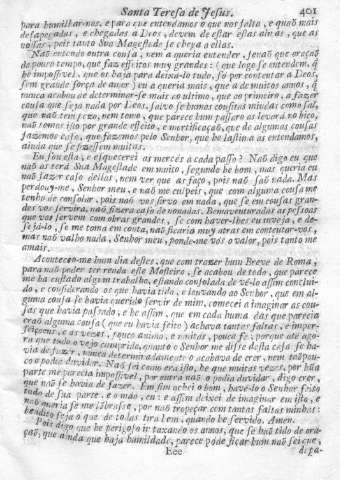 Santa Teresa de Jesus. 401
para humilhar-nos, e para que entendamos o que nos falta, e quaõ mais
desapegadas, e chegadas a Deos, devem de estar estas almas, que as
vossas, pois tanto Sua Magestade se chega a ellas.
Naõ entendo outra cousa, nem a queria entender, senaõ que oraçaõ
de pouco tempo, que faz effeitos muy grandes: (que logo se entendem, q̃
he impossivel, que os haja para deixa-lo tudo, só por contentar a Deos,
sem grande força de amor) eu a queria mais, que a de muitos annos, q̃
nunca acabou de determinar-se mais ao ultimo, que ao primeiro, a fazer
cousa que seja nada por Deos, salvo se humas cousitas miudas como sal,
que naõ tem pezo, nem tomo, que parece hum passaro as levará no bico,
naõ temos isto por grande effeito, e mortificaçaõ, que de algumas cousas
fazemos caso, que fazemos pelo Senhor, que he lastima as entendamos,
ainda que se fizessem muitas.
Eu sou esta, e esquecerei as mercês a cada passo? Naõ digo eu que
naõ as terá Sua Magestade em muito, segundo he bom, mas queria eu
naõ fazer caso dellas, nem ver que as faço, pois naõ saõ nada. Mas
perdoay-me, Senhor meu, e naõ me culpeis, que com alguma cousa me
tenho de consolar, pois naõ vos sirvo em nada, que se em cousas gran-
des vos servira, naõ fizera caso de nonadas. Bemaventuradas as pessoas
que vos servem com obras grandes, se com haver-lhes eu inveja, e de-
sejá-lo, se me toma em conta, naõ ficaria muy atras em contentar-vos,
mas naõ valho nada, Senhor meu, ponde-me vós o valor, pois tanto me
amais.
Aconteceo-me hum dia destes, que com trazer hum Breve de Roma,
para naõ poder ter renda este Mosteiro, se acabou de todo, que parece
me ha custado algum trabalho, estando consolada de vê-lo assim conclui-
do, e considerando os que havia tido, e louvando ao Senhor, que em al-
guma cousa se havia querido servir de mim, comecei a imaginar as cou-
sas que havia passado, e he assim, que em cada huma das que parecia
eraõ alguma cousa (que eu havia feito) achava tantas faltas, e imper-
feiçoens, e as vezes, pouco animo, e muitas, pouca fé, porque até ago-
ra que tudo o vejo comprido, quanto o Senhor me disse desta casa se ha-
via de fazer, nunca determinadamente o acabava de crer, nem taõpou-
co o podia duvidar. Naõ sei como era isto, he que muitas vezes, por huma
parte me parecia impossivel, por outra naõ o podia duvidar, digo crer,
que naõ se havia de fazer. Em fim achei o bom, havê-lo o Senhor feito
tudo de sua parte, e o mão, eu: e assim deixei de imaginar em isto, e
naõ queria se me lembrasse, por naõ tropeçar com tantas faltas minhas:
bendito seja o que de todas tira bem, quando he servido. Amen.
Pois digo que he perigoso ir taxando os annos, que se haõ tido de ora-
çaõ, que ainda que haja humildade, parece póde ficar hum naõ sei que,
Eee de pa-